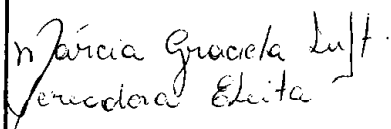 Márcia Graciela Luft.
Vereadora Eleita